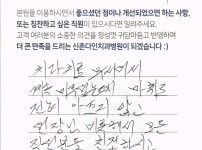 본원을 이용하시면서 좋으셨던 점이나 개선되었으면 하는 사항,
또는 칭찬하고 싶은 직원이 있으시다면 알려주세요.
고객 여러분의 소중한 의견을 정성껏 귀담아듣고 반영하며
더 큰 만족을 드리는 신촌다인치과병원이 되겠습니다 :)
치과치료
마취
전혀 아프지 않
비롯해서 모든
직원분들 친절하시